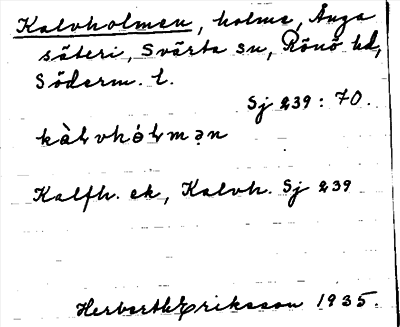 Kalvholmen, holme, Ånga
säteri, Svärta sn, Rönö hd,
Söderm. l.
Sj 239 : 70.
kàlvhólmən
Kalfh. ek, Kalvh. Sj 239
Herbert Eriksson 1935.